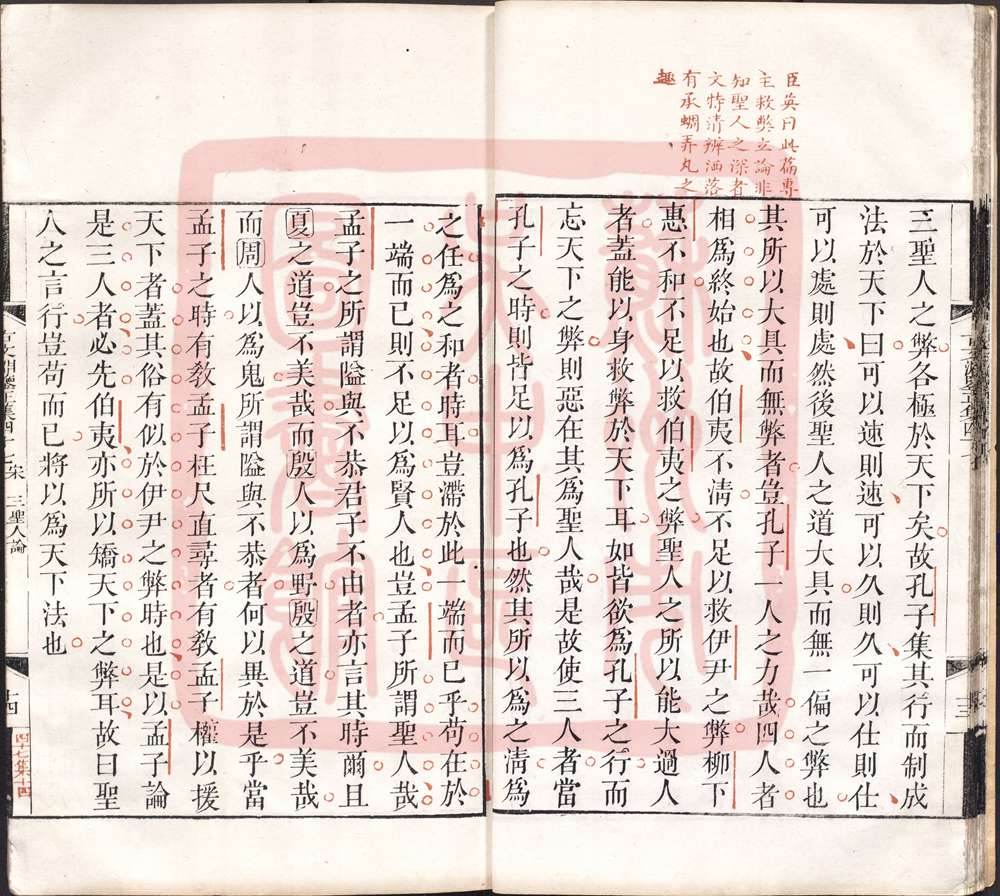 臣英曰此篇專
主救弊立論非
知聖人之深者
文特清辨洒落
有承蜩弄丸之
趣
三聖人之弊各極於天下矣故孔子集其行而制成
法於天下曰可以速則速可以久則久可以仕則仕
可以處則處然後聖人之道大具而無一偏之弊也
其所以大具而無弊者豈孔子一人之力哉四人者
相爲終始也故伯夷不清不足以救伊尹之弊柳下
惠不和不足以救伯夷之弊聖人之所以能大過人
者蓋能以身救弊於天下耳如皆欲爲孔子之行而
忘天下之弊則惡在其爲聖人哉是故使三人者當
孔子之時則皆足以爲孔子也然其所以爲之清爲
之任爲之和者時耳豈滯於此一端而已乎苟在於
一端而已則不足以爲賢人也豈孟子所謂聖人哉
孟子之所謂隘與不恭君子不由者亦言其時爾且
夏之道豈不美哉而殷人以爲野殷之道豈不美哉
而周人以爲鬼所謂隘與不恭者何以異於是乎當
孟子之時有敎孟子枉尺直尋者有敎孟子權以援
天下者蓋其俗有似於伊尹之弊時也是以孟子論
是三人者必先伯夷亦所以矯天下之弊耳故曰聖
人之言行豈苟而已將以爲天下法也
宋 三聖人論
十四
四十七集十四